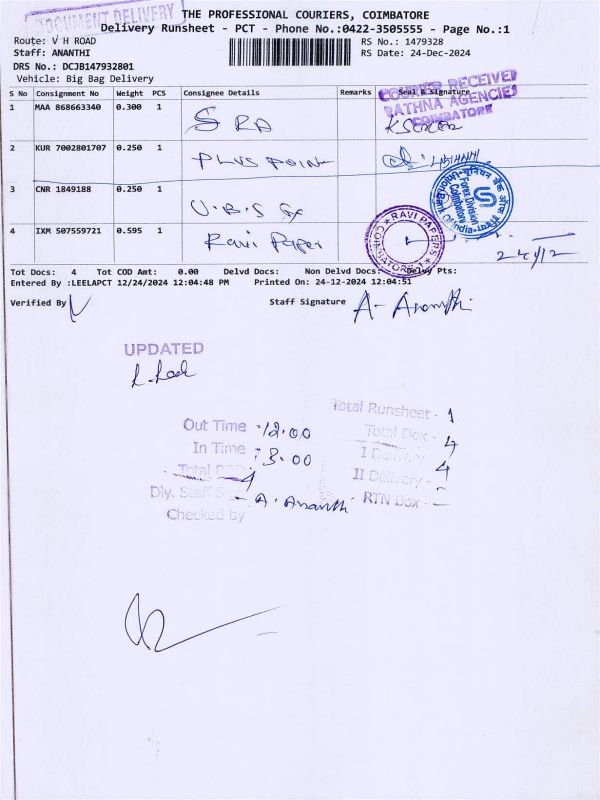 DOCUMENT DELIVERY
THE PROFESSIONAL COURIERS, COIMBATORE
Delivery Runsheet - PCT - Phone No.:0422-3505555 - Page No.:1
Route: V H ROAD
RS No.: 1479328
Staff: ANANTHI
RS Date: 24-Dec-2024
DRS No.: DCJB147932801
Vehicle: Big Bag Delivery
COURIER RECEIVED
RATHNA AGENCIES
COIMBATORE
S No Consignment No Weight PCS Consignee Details Remarks Seal & Signature
1 MAA 868663340 0.300 1 SRA
2 KUR 7002801707 0.250 1 PLUS POINT
3 CNR 1849188 0.250 1 U.B.S
4 IXM 507559721 0.595 1 Ravi Paper
यूनियन बैंक ऑफ इंडिया Union Bank of India
Forex Division
Coimbatore
RAVI PAPERS
COIMBATORE-1
24/12
Tot Docs: :4 Tot COD Amt: 0.00 Delvd Docs: Non Delvd Docs: Delvy Pts:
Entered By :LEELAPCT 12/24/2024 12:04:48 PM Printed On: 24-12-2024 12:04:51
Verified By
Staff Signature A- Ananthi
UPDATED
Total Runsheet - 1
Out Time :12.00
Total Dox - 4
In Time : 3.00
I Delivery - 4
II Delivery -
Dly. Staff - A. Ananthi
RTN Dox -
Checked by